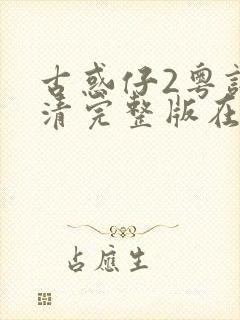 古惑仔2粤
清完整版在
占应生